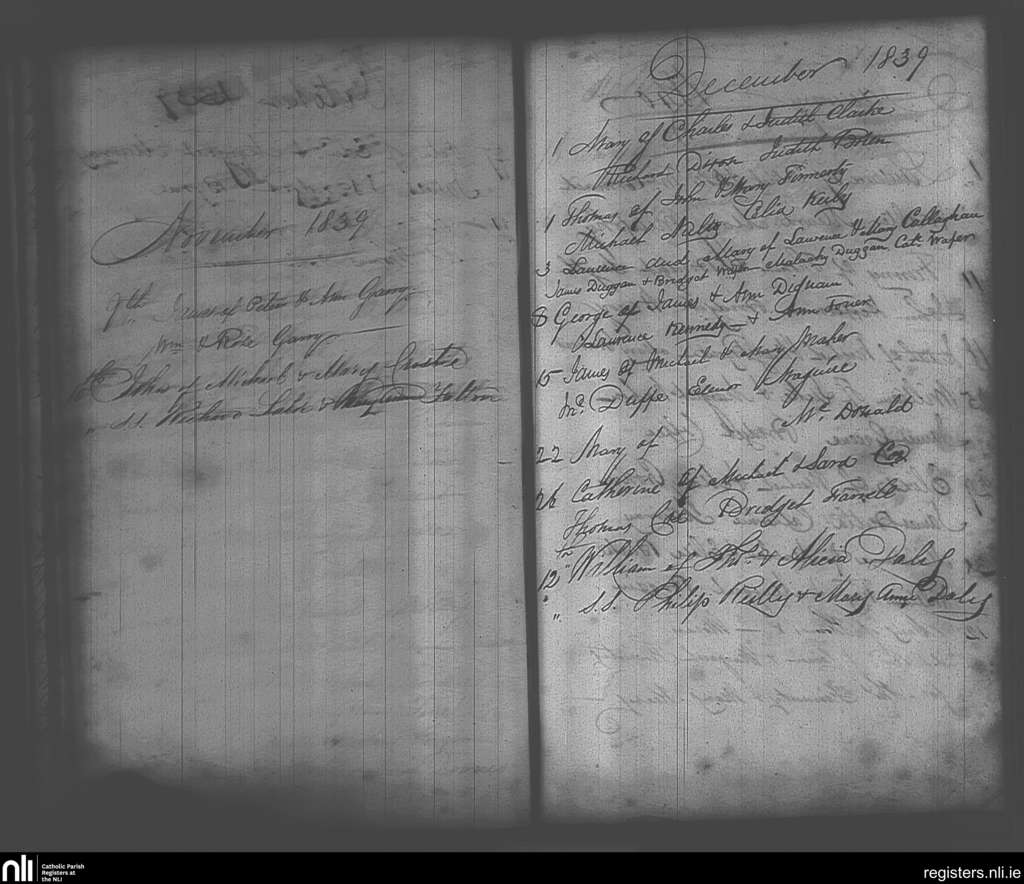 November 1839
7th James of Peter & Ann Garry
Wm & Rose Garry
John of Michael & Mary
" S.S. & Fulton
December 1839
1 Mary of Charles & Judith Clarke
Richard Dixon Judith Brien
1 Thomas of John & Mary Finnerty
Michael Nalty Celia Kerby
3 Laurence and Mary of Laurence & Mary Callaghan
James Duggan & Bridget Wafer Malachy Duggan Cath Wafer
8 George of James & Ann Dignam
Laurence Kennedy & Ann Tower
15 James of Michael & Mary Maher
Jno. Duffe Elenor Maguire
22 Mary of Mc. Donald
26 Catherine of Michael & Sara Coe
Thomas Coe Bridget Farrell
12th " William of Thos. & Alicia Daly
" S.S. Philip Reilly & Mary Anne Daly
nli
Catholic Parish
Registers at
the NLI
registers.nli.ie